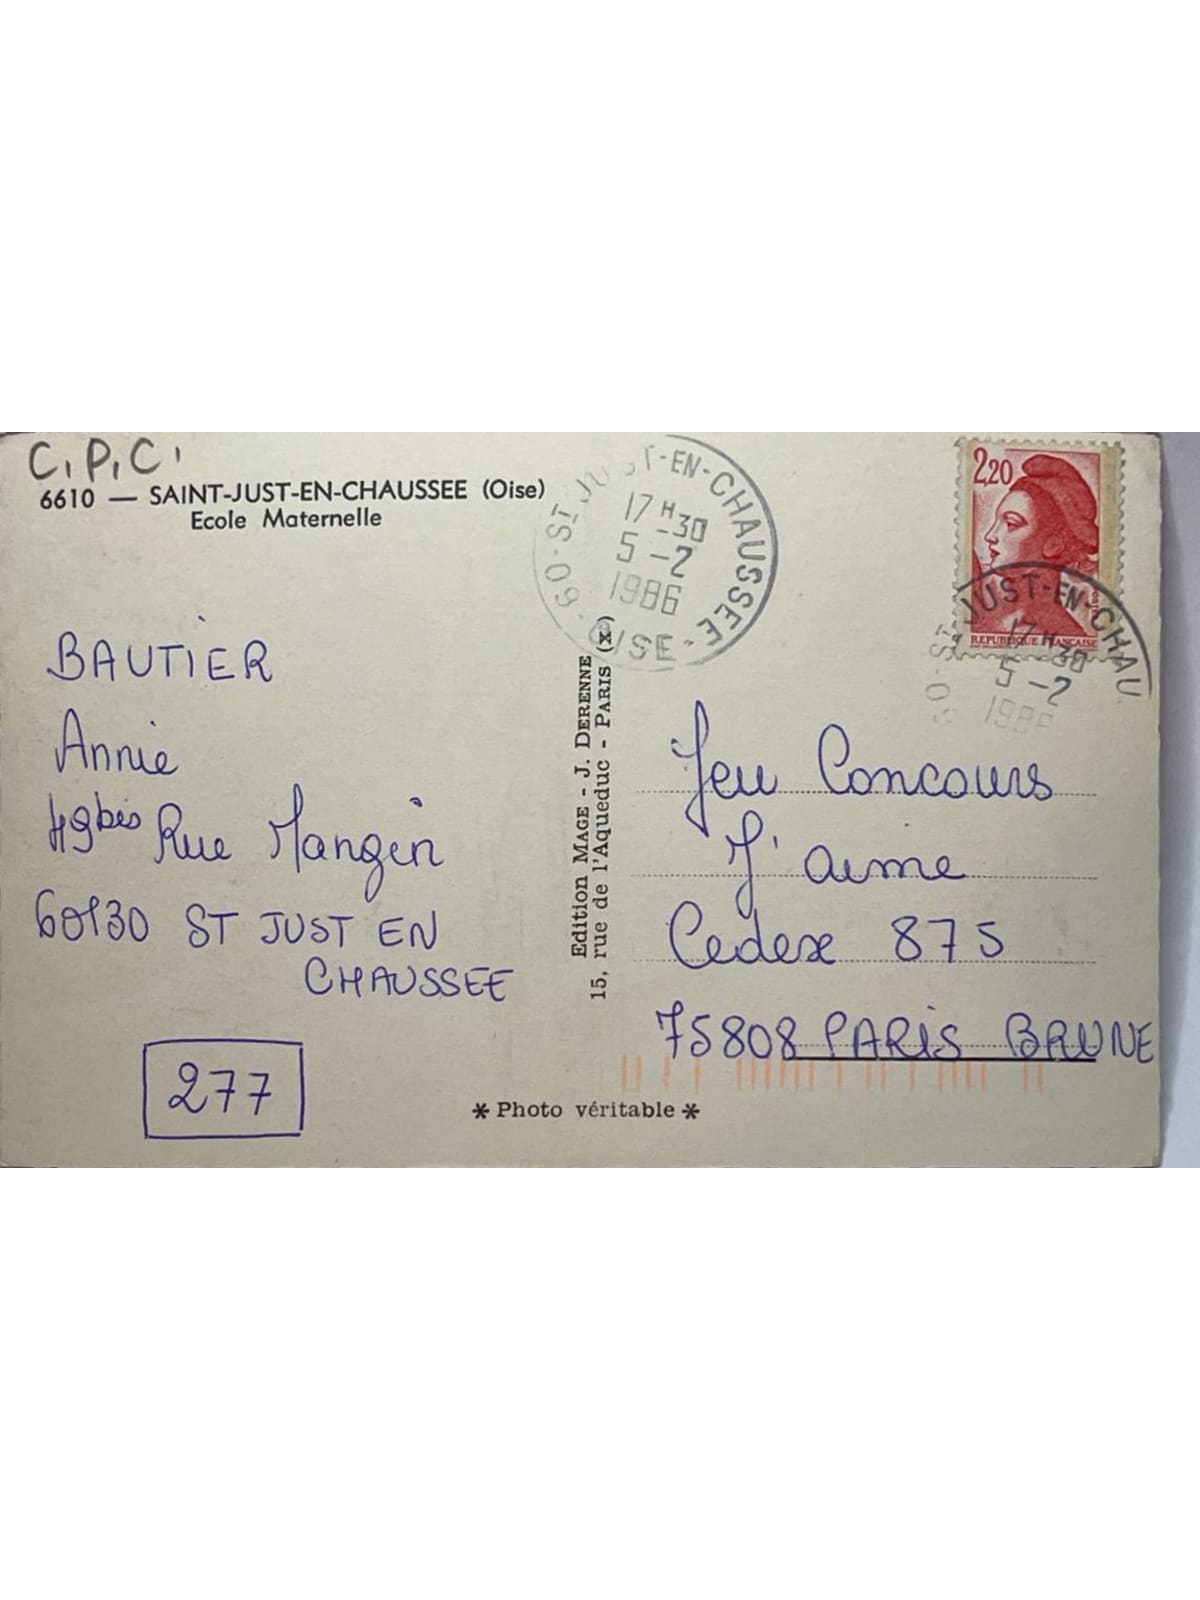 C.P.C.
6610 — SAINT-JUST-EN-CHAUSSEE (Oise)
Ecole Maternelle
BAUTIER
Annie
49bis Rue Mangin
60130 ST JUST EN
CHAUSSEE
277
Edition MAGE - J. DERENNE
15, rue de l'Aqueduc - PARIS (x)
* Photo véritable *
60 - ST JUST-EN-CHAUSSEE - OISE -
17 H -30
5 -2
1986
2,20
REPUBLIQUE FRANÇAISE
60 - ST JUST-EN-CHAU
17 H 30
5 -2
1986
Jeu Concours
J'aime
Cedex 875
75808 PARIS BRUNE